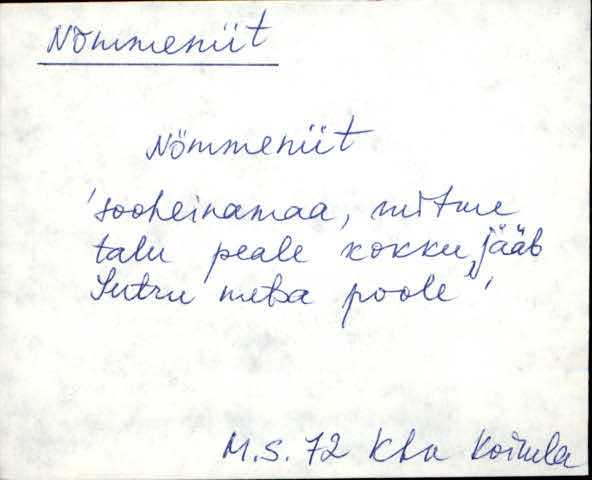 Nõmmeniit
Nõmmeniit
'sooheinamaa, mitme
talu peale kokku, jääb
Sutru metsa poole'
M.S. 72 Kha Koimla